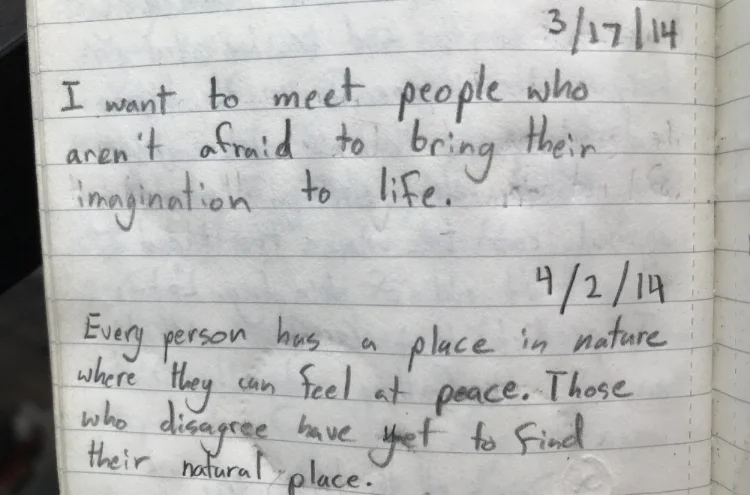 3/17/14
I want to meet people who
aren't afraid to bring their
imagination to life.
4/2/14
Every person has a place in nature
where they can feel at peace. Those
who disagree have yet to find
their natural place.